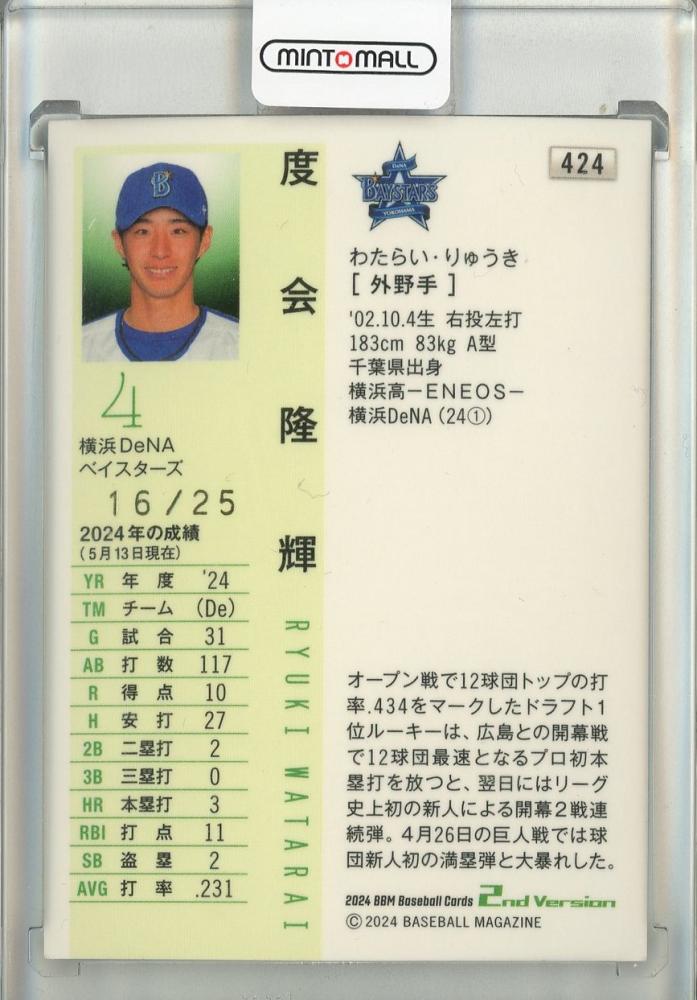 MINTOMALL
424
DeNA
BAYSTARS
YOKOHAMA
度会隆輝
RYUKI WATARAI
4
横浜DeNA
ベイスターズ
16/25
2024年の成績
(5月13日現在)
YR 年度 '24
TM チーム (De)
G 試合 31
AB 打数 117
R 得点 10
H 安打 27
2B 二塁打 2
3B 三塁打 0
HR 本塁打 3
RBI 打点 11
SB 盗塁 2
AVG 打率 .231
わたらい・りゅうき
[ 外野手 ]
'02.10.4生 右投左打
183cm 83kg A型
千葉県出身
横浜高－ENEOS－
横浜DeNA (24①)
オープン戦で12球団トップの打
率.434をマークしたドラフト1
位ルーキーは、広島との開幕戦
で12球団最速となるプロ初本
塁打を放つと、翌日にはリーグ
史上初の新人による開幕2戦連
続弾。4月26日の巨人戦では球
団新人初の満塁弾と大暴れした。
2024 BBM Baseball Cards 2nd Version
©2024 BASEBALL MAGAZINE